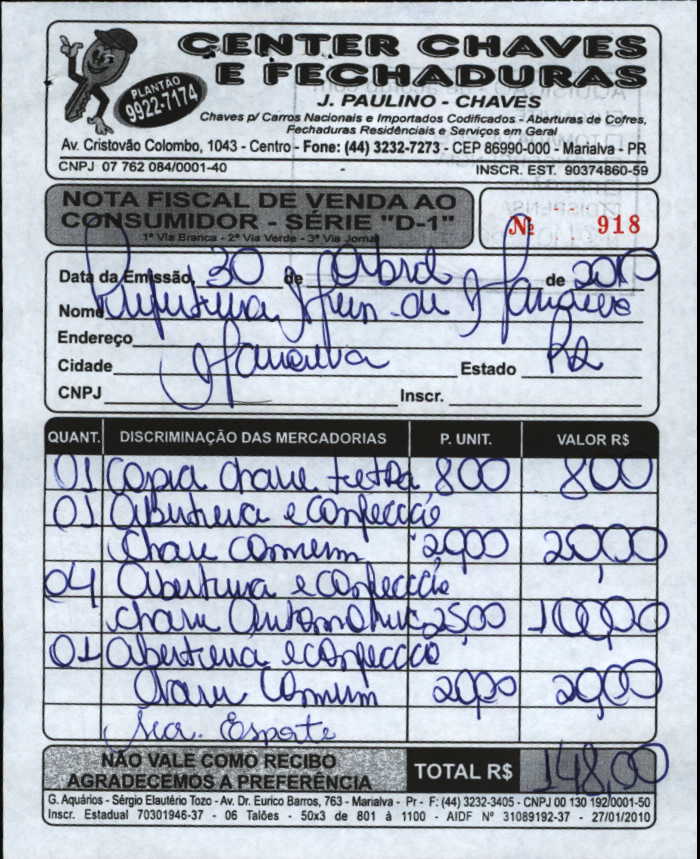 PLANTÃO
9922-7174
CENTER CHAVES
E FECHADURAS
J. PAULINO - CHAVES
Chaves p/ Carros Nacionais e Importados Codificados - Aberturas de Cofres,
Fechaduras Residênciais e Serviços em Geral
Av. Cristovão Colombo, 1043 - Centro - Fone: (44) 3232-7273 - CEP 86990-000 - Marialva - PR
CNPJ 07 762 084/0001-40 INSCR. EST. 90374860-59
NOTA FISCAL DE VENDA AO
CONSUMIDOR - SÉRIE "D-1"
1ª Via Branca - 2ª Via Verde - 3ª Via Jornal
Nº 918
Data da Emissão, 30 de Abril de 2010
Nome Prefeitura Mun. de Marialva
Endereço
Cidade Marialva Estado PR
CNPJ Inscr.
QUANT. DISCRIMINAÇÃO DAS MERCADORIAS P. UNIT. VALOR R$
01 Copia chave tetra 8,00 8,00
01 Abertura e confecção
chave comum 20,00 20,00
04 Abertura e confecção
chave Automotiva 25,00 100,00
01 Abertura e confecção
chave comum 20,00 20,00
Sec. Esporte
NÃO VALE COMO RECIBO
AGRADECEMOS A PREFERÊNCIA
TOTAL R$ 148,00
G. Aquários - Sérgio Elautério Tozo - Av. Dr. Eurico Barros, 763 - Marialva - Pr - F: (44) 3232-3405 - CNPJ 00 130 192/0001-50
Inscr. Estadual 70301946-37 - 06 Talões - 50x3 de 801 à 1100 - AIDF Nº 31089192-37 - 27/01/2010